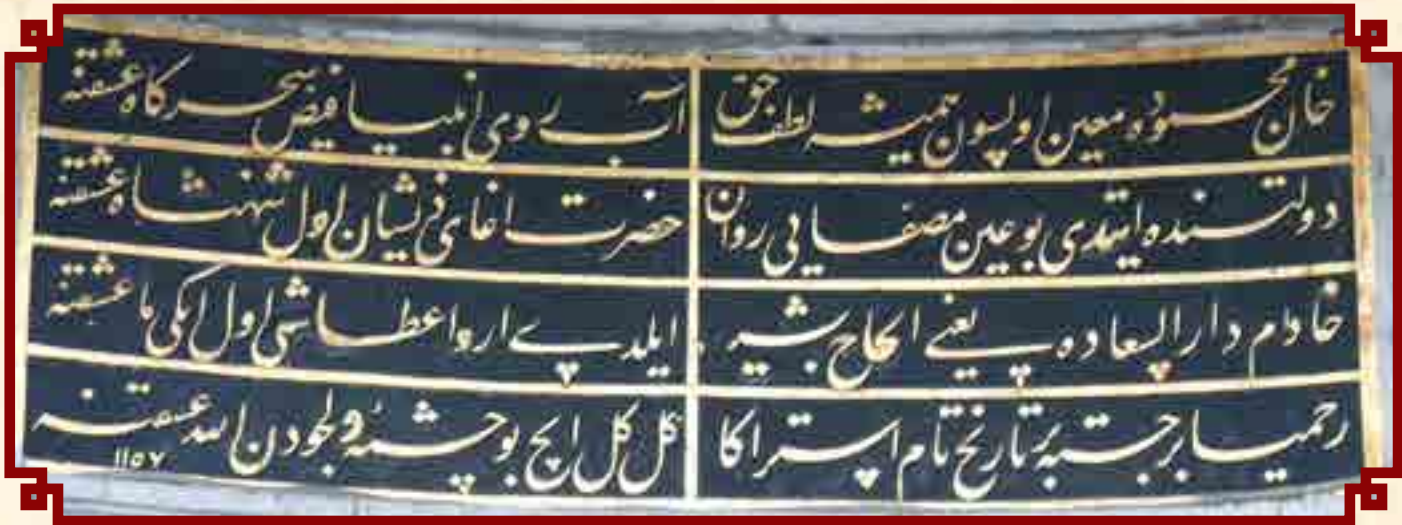 خان محموده معین اولسون همیشه لطف حق
آب روی انبیا فیض سحرگاه عشقنه
دولتنده ایتدی بو عین مصفایی روان
حضرت اغای ذیشان اول شهنشاه عشقنه
خادم دار السعاده یعنی الحاج بشیر
ایلدی اروا عطاشی اول ایکی ماه عشقنه
رحمیا برجسته بر تاریخ تام استر اکا
کل کل ایچ بو چشمهٔ دلجودن الله عشقنه
١١٥٧